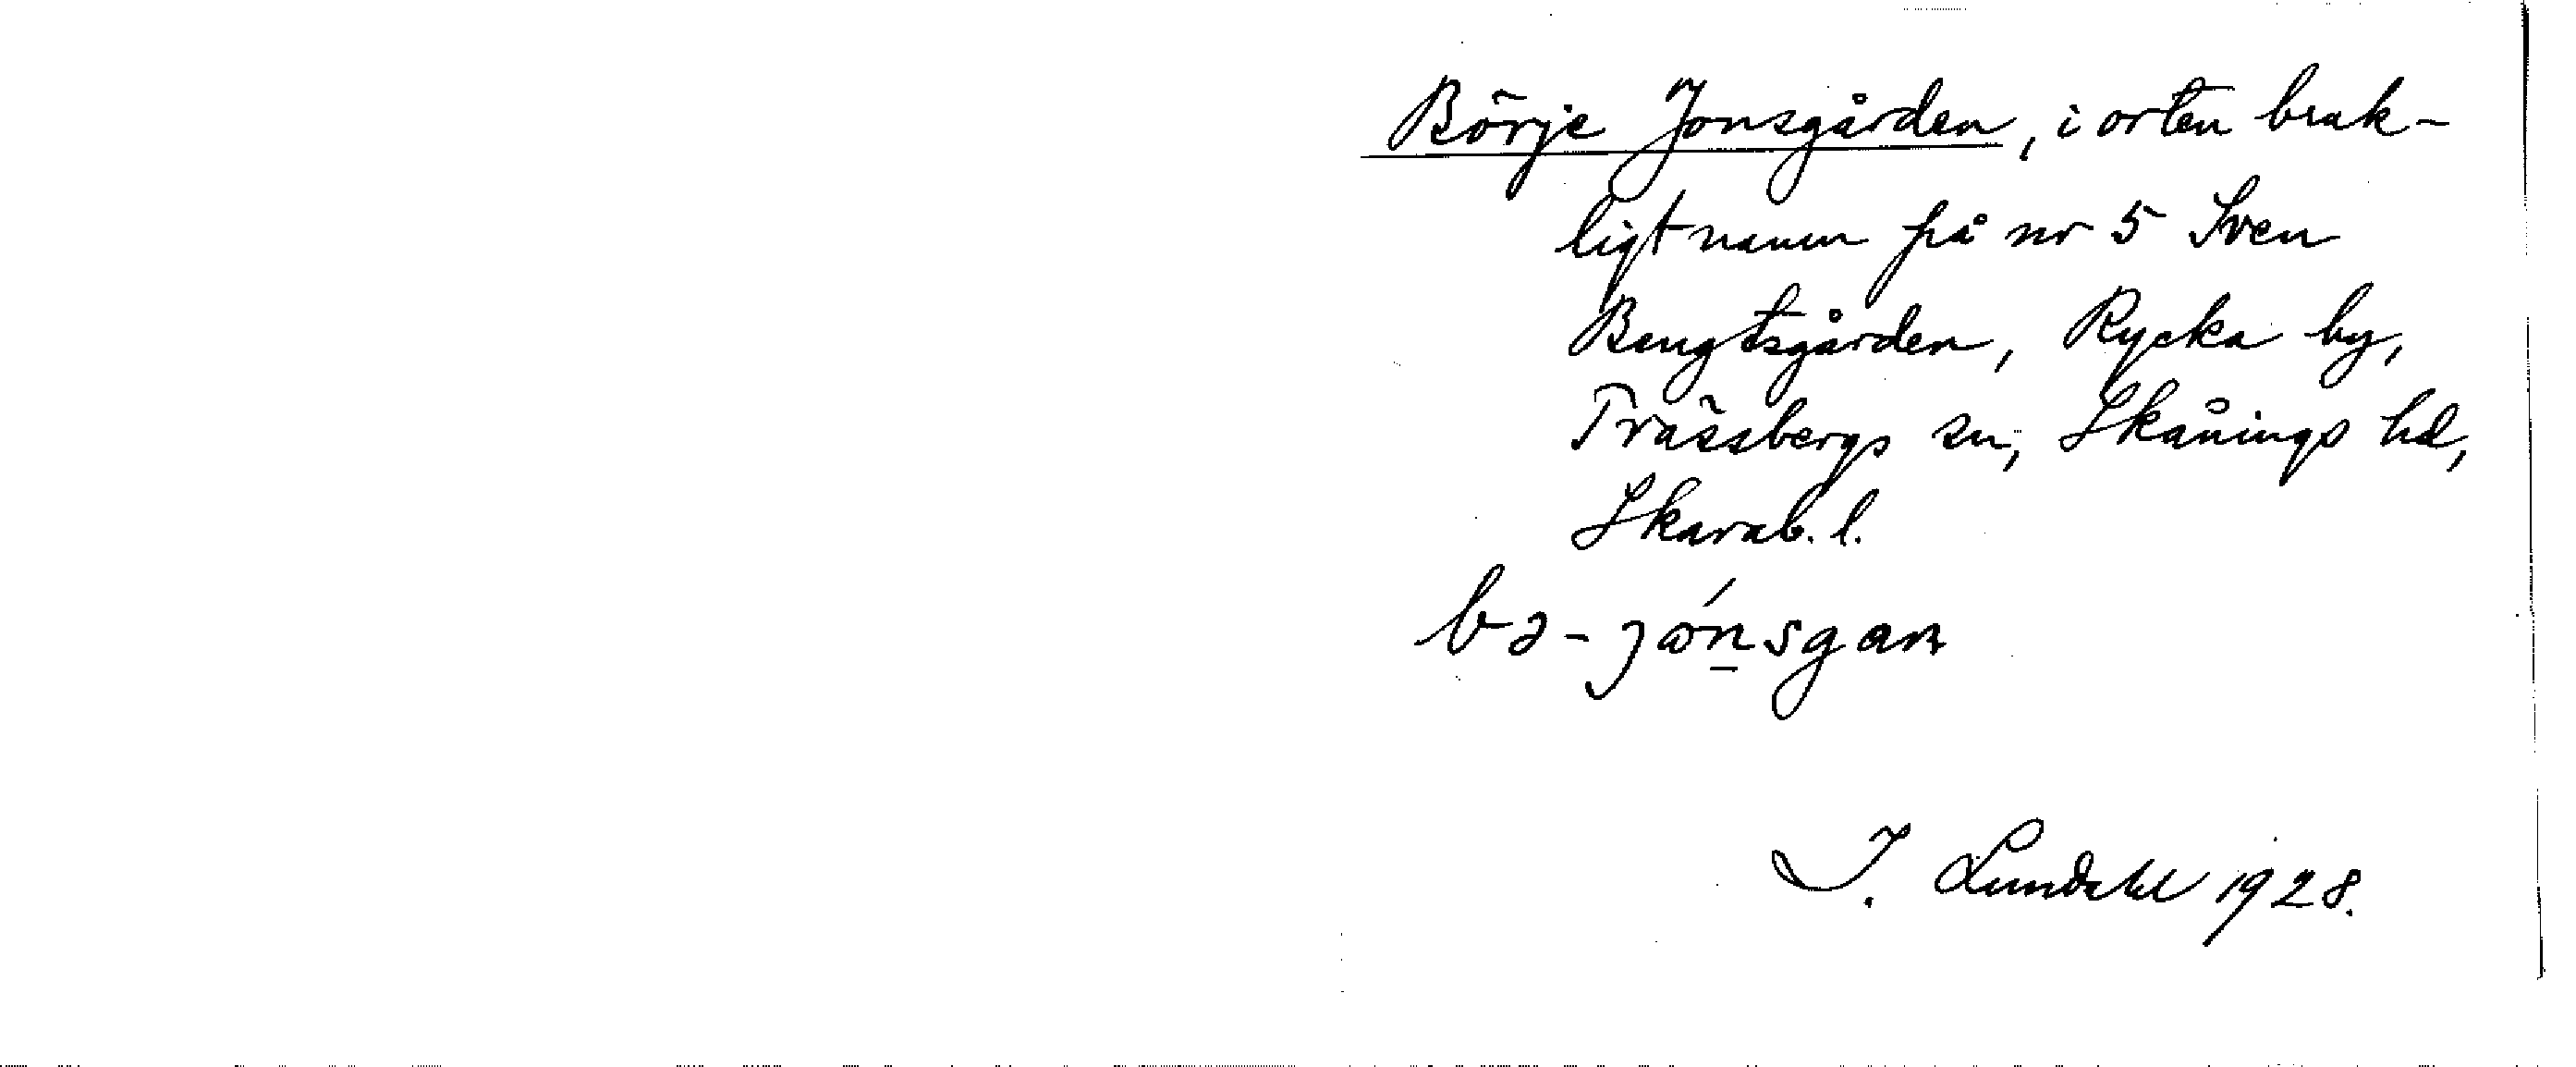 Börje Jonsgården, i orten bruk-
ligt namn på nr 5 Sven
Bengtsgården, Rycka by,
Trässbergs sn, Skånings hd,
Skarab. l.
bə-jónsgan
I. Lundahl 1928.